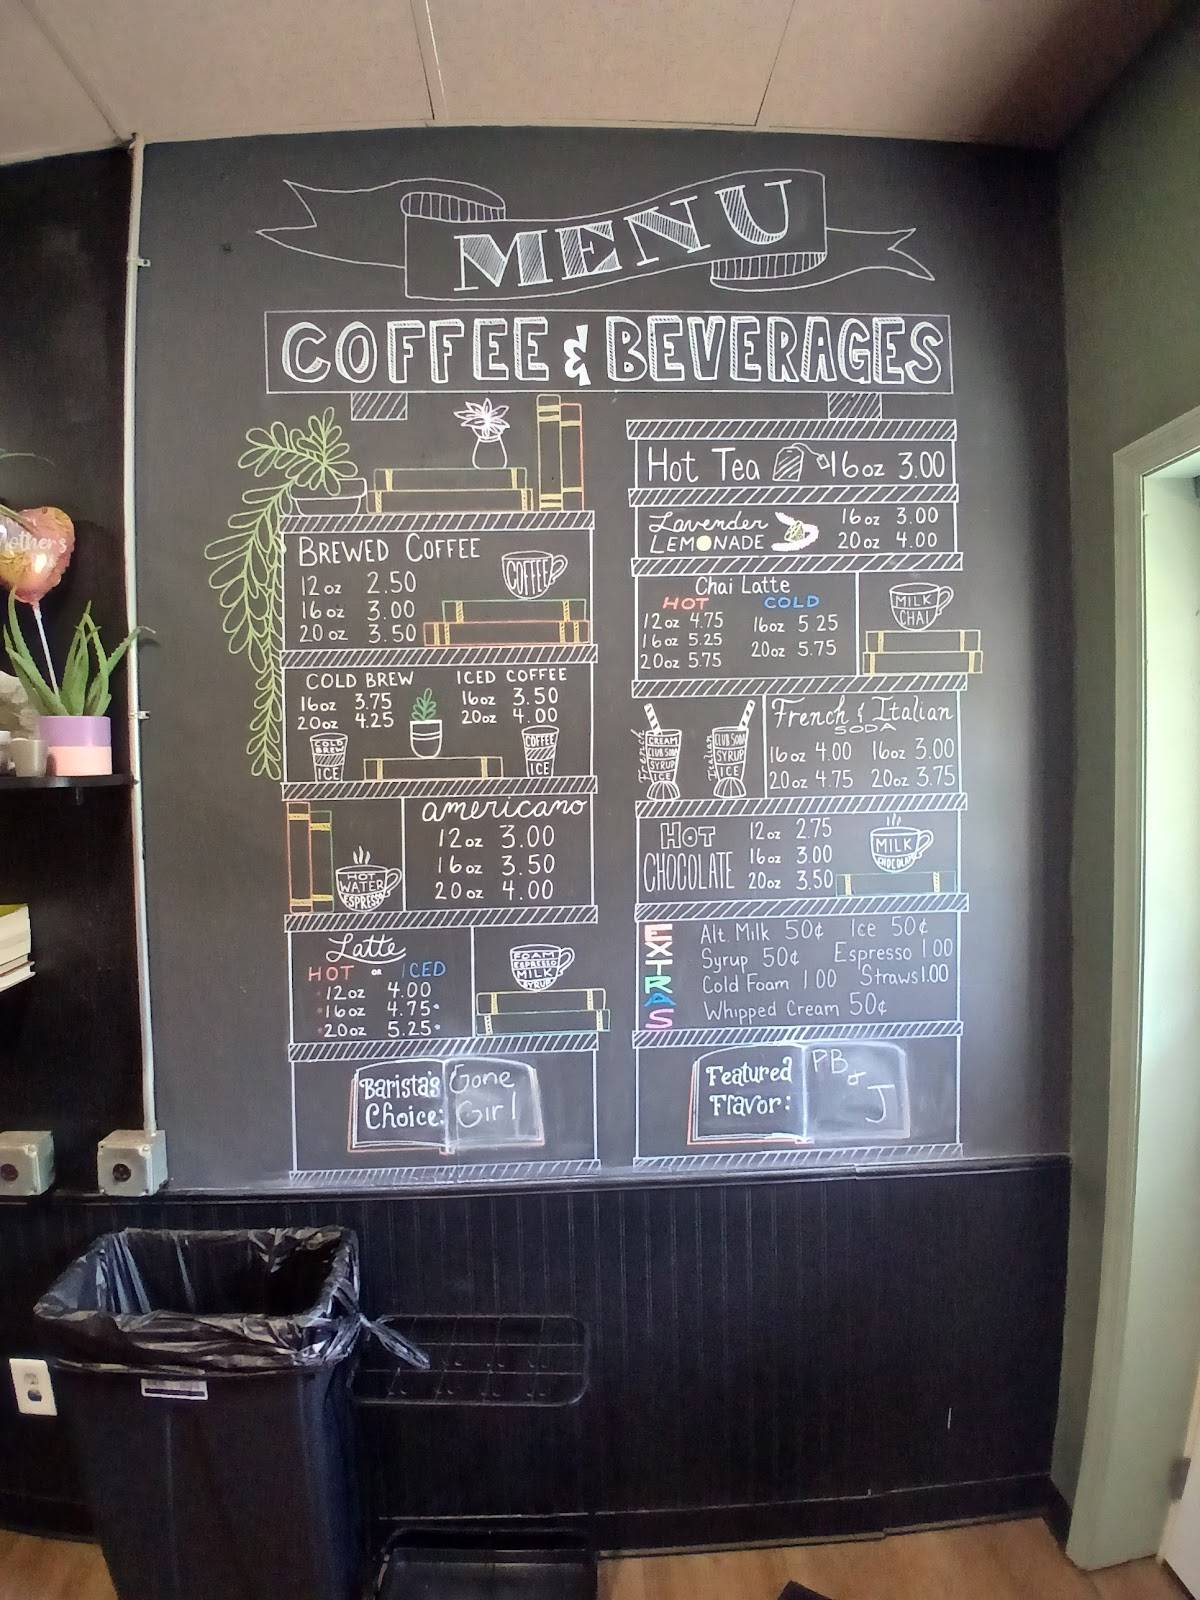 MENU
COFFEE & BEVERAGES
BREWED COFFEE
12oz 2.50
16oz 3.00
20oz 3.50
COFFEE
COLD BREW
16oz 3.75
20oz 4.25
ICED COFFEE
16oz 3.50
20oz 4.00
COLD
BREW
ICE
COFFEE
ICE
americano
12oz 3.00
16oz 3.50
20oz 4.00
HOT
WATER
ESPRESSO
Latte
HOT OR ICED
12oz 4.00
16oz 4.75
20oz 5.25
FOAM
ESPRESSO
MILK
SYRUP
Barista's
Choice:
Gone
Girl
Hot Tea 16oz 3.00
Lavender
LEMONADE
16oz 3.00
20oz 4.00
Chai Latte
HOT
12oz 4.75
16oz 5.25
20oz 5.75
COLD
16oz 5.25
20oz 5.75
MILK
CHAI
French
CREAM
CLUB SODA
SYRUP
ICE
Italian
CLUB SODA
SYRUP
ICE
French & Italian
SODA
16oz 4.00 16oz 3.00
20oz 4.75 20oz 3.75
HOT
CHOCOLATE
12oz 2.75
16oz 3.00
20oz 3.50
MILK
CHOCOLATE
EXTRAS
Alt. Milk 50¢ Ice 50¢
Syrup 50¢ Espresso 1.00
Cold Foam 1.00 Straws 1.00
Whipped Cream 50¢
Featured
Flavor:
PB
&
J